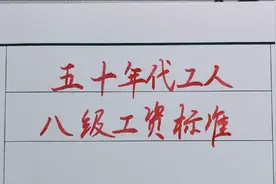 五十年代工人
八级工资标准